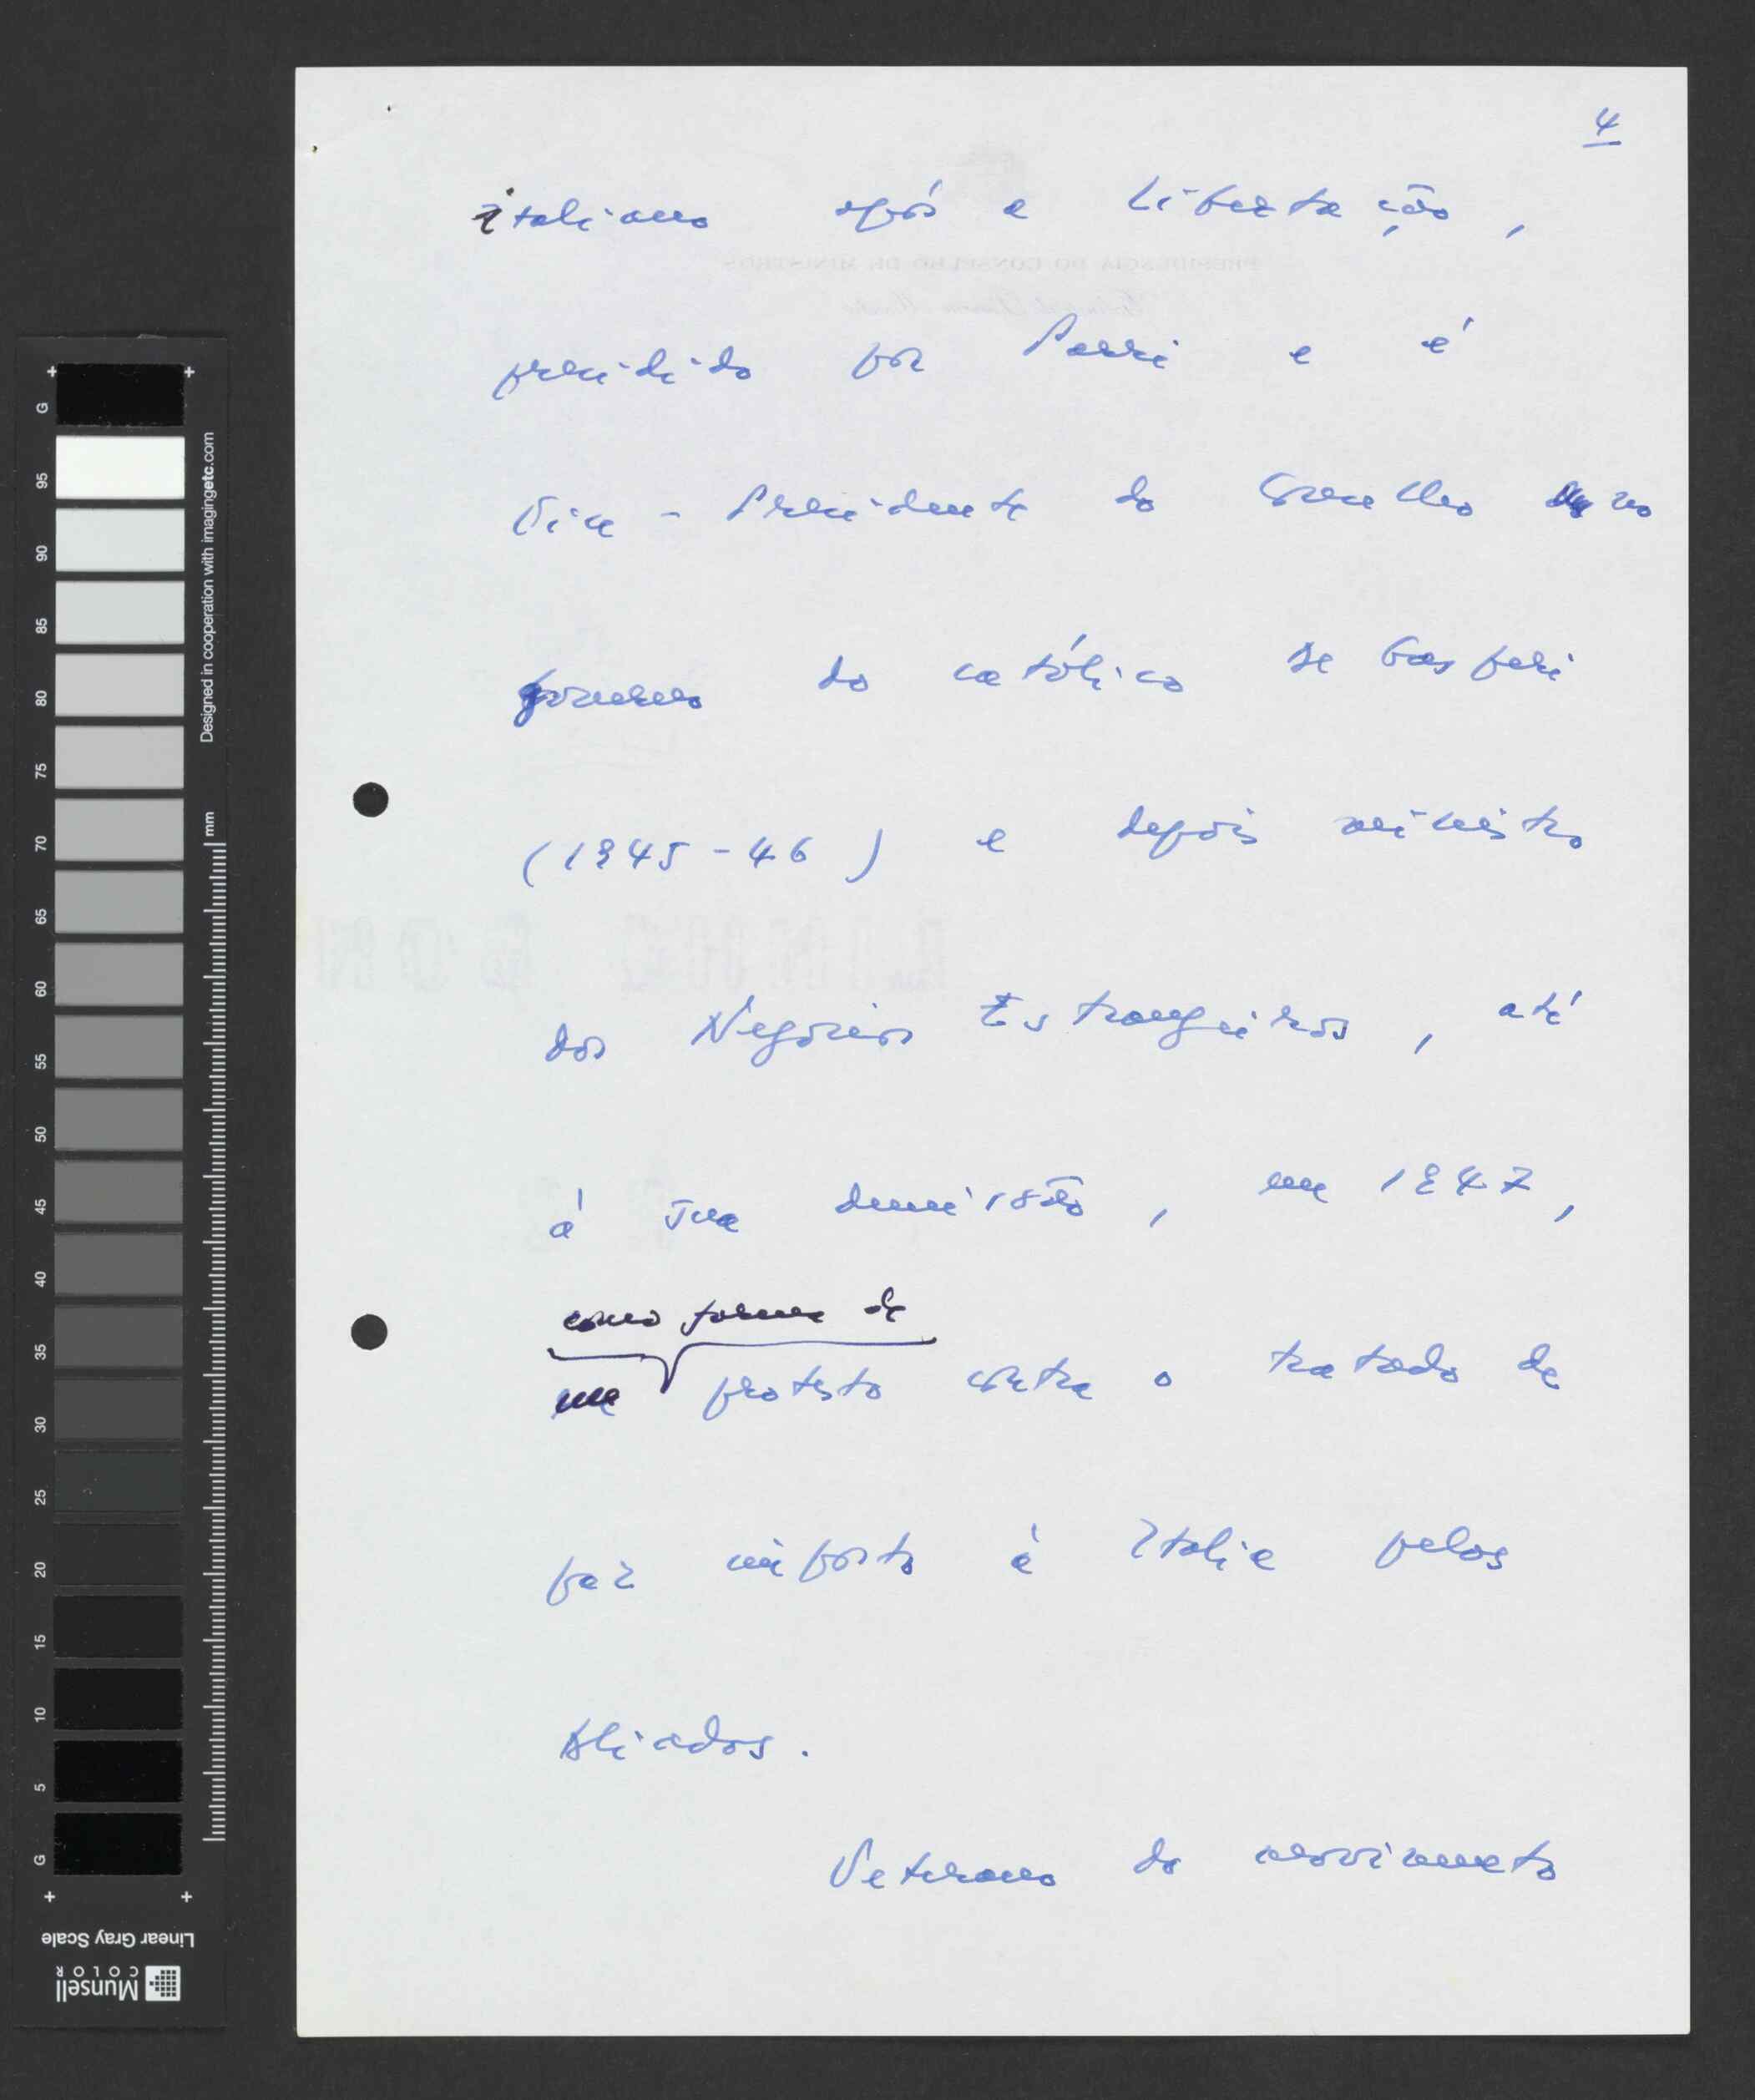 4
italiano após a Libertação,
presidido por Parri e é
Vice-Presidente do Conselho no
governo do católico De Gasperi
(1945-46) e depois ministro
dos Negócios Estrangeiros, até
à sua demissão, em 1947,
como forma de
em protesto contra o tratado de
paz imposto à Itália pelos
Aliados.
Veterano do movimento
G
95
90
85
80
75
70
65
60
55
50
45
40
35
30
25
20
15
10
5
G
Designed in cooperation with imagingetc.com
mm
Linear Gray Scale
Munsell
COLOR
PRESIDÊNCIA DO CONSELHO DE MINISTROS